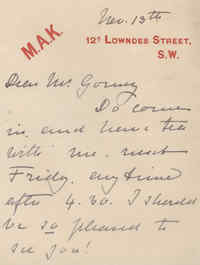 Nov. 13th
M.A.K.
12A Lowndes Street,
S.W.
Dear Mr
Do come
in and have tea
with me, next
Friday, any time
after 4.30. I should
be so pleased to
see you!